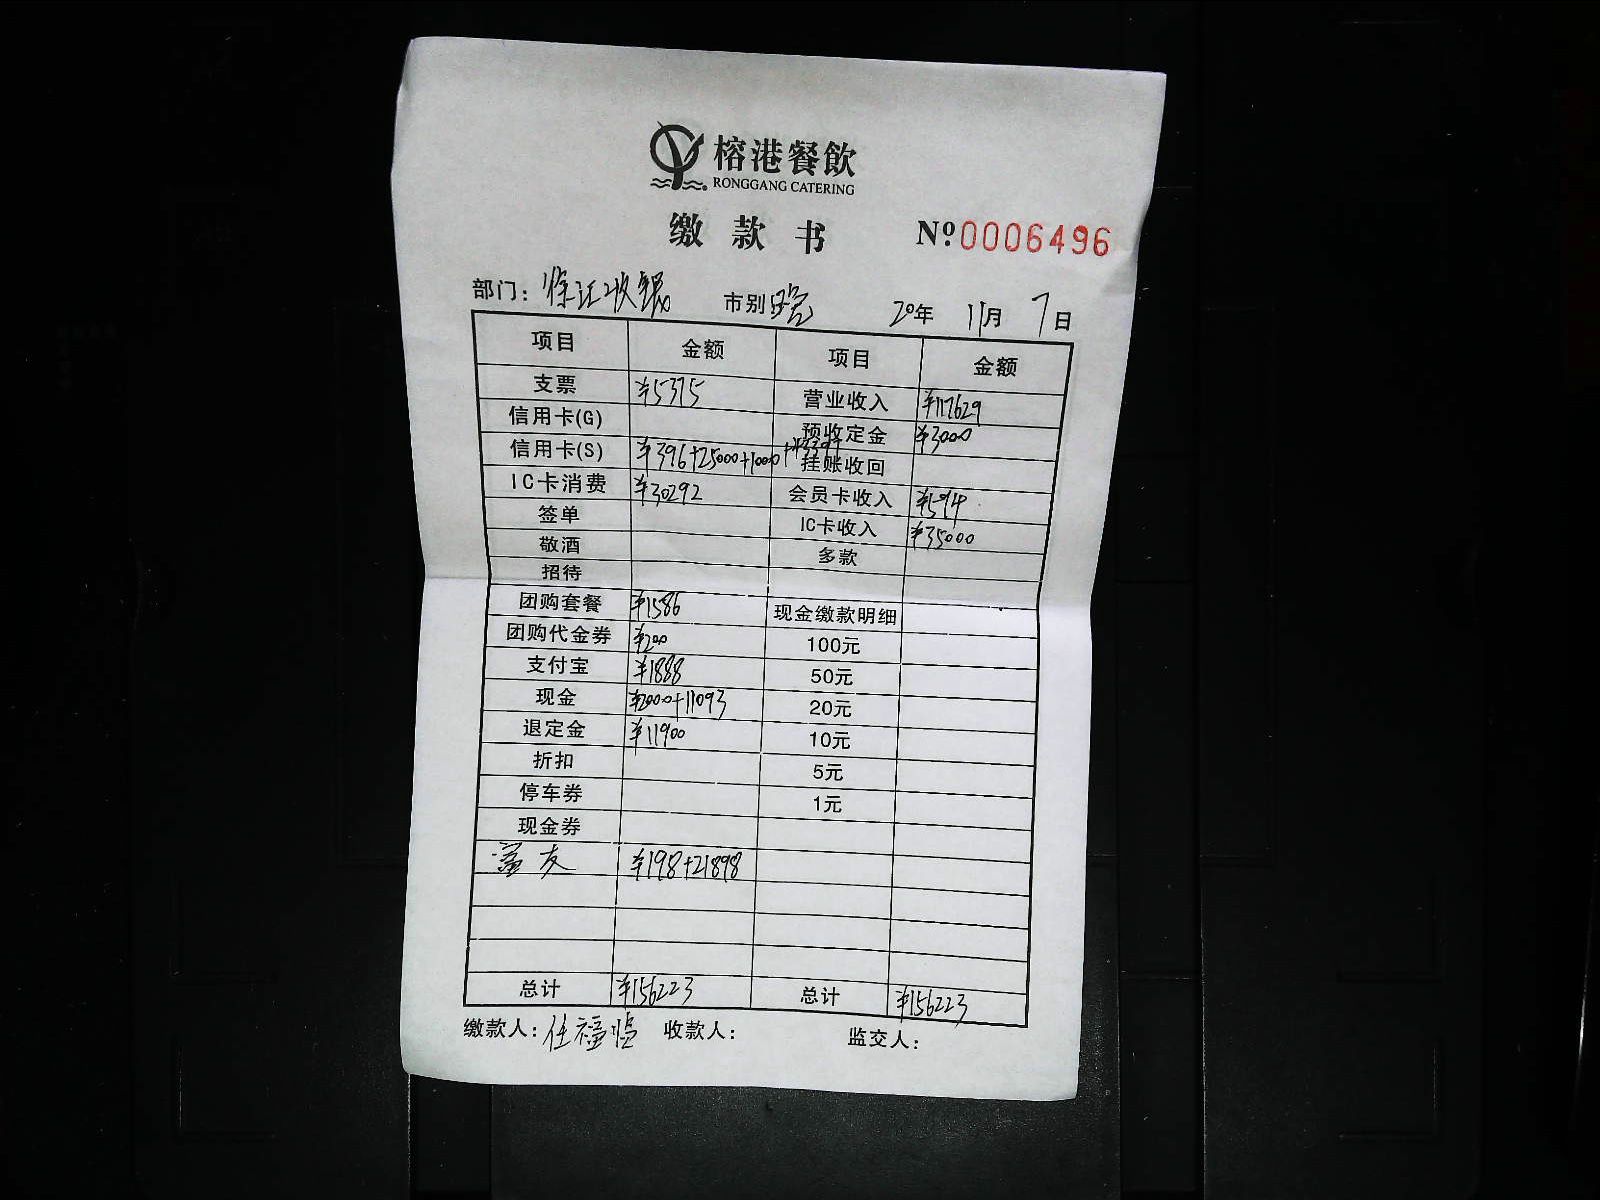 榕港餐飲
RONGGANG CATERING
缴款书 Nº0006496
部门: 徐汇收银 市别 晚 20年 11月 7日
项目 金额 项目 金额
支票 ¥5375 营业收入 ¥117629
信用卡(G) 预收定金 ¥3000
信用卡(S) ¥396+25000+1000 挂账收回
IC卡消费 ¥30292 会员卡收入 ¥594
签单 IC卡收入 ¥35000
敬酒 多款
招待
团购套餐 ¥1586 现金缴款明细
团购代金券 ¥200 100元
支付宝 ¥1888 50元
现金 ¥2000+11093 20元
退定金 ¥11900 10元
折扣 5元
停车券 1元
现金券
¥198+21898
总计 ¥156223 总计 ¥156223
缴款人: 任福 收款人: 监交人: